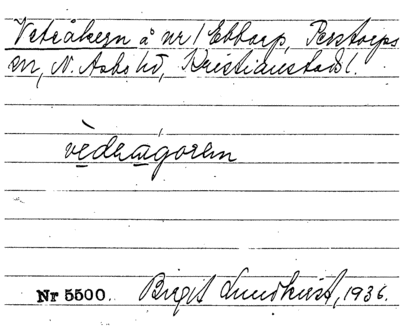 Vetråkern å nr 1 Ebbarp, Perstorps
sn, N. Åsbo hd, Kristianstads l.
Nr 5500. Birgit Lundkvist, 1936.